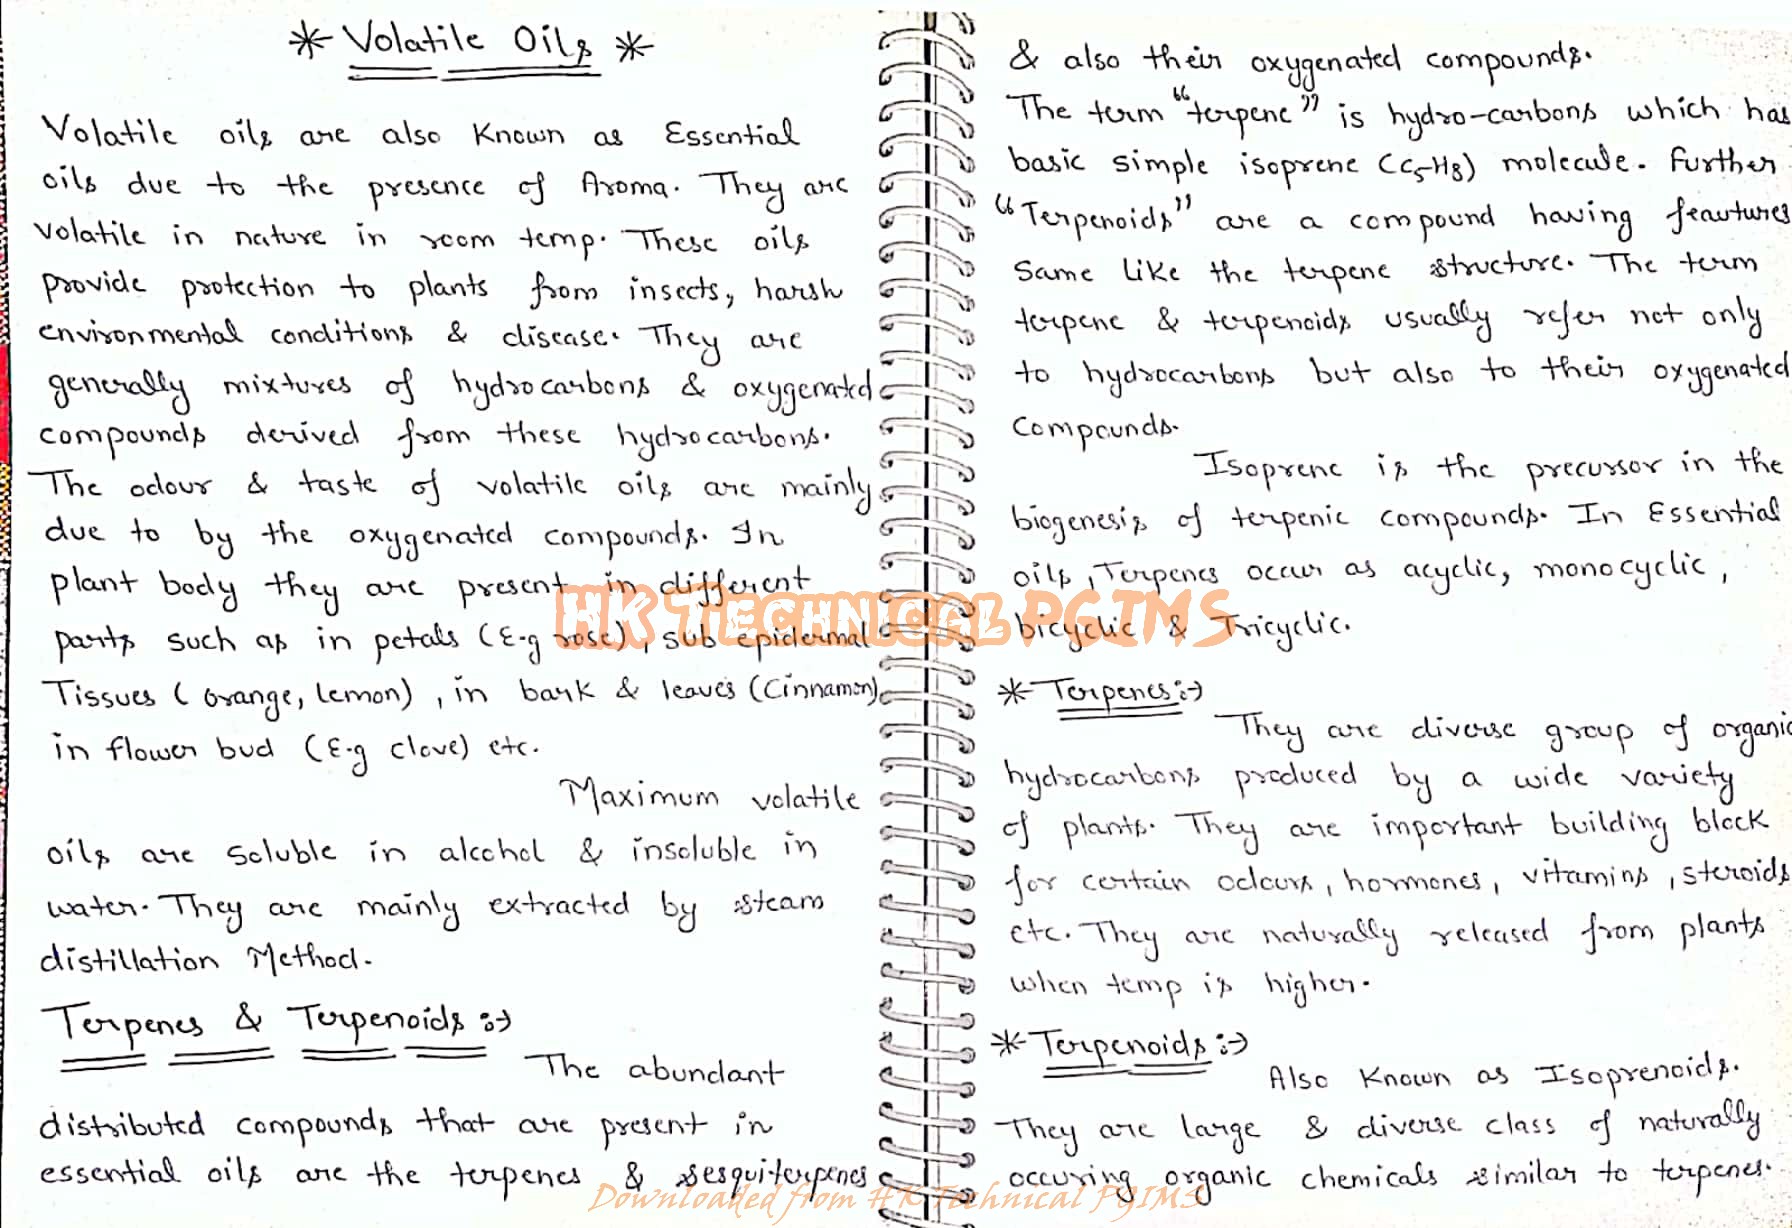 * Volatile Oils *
Volatile oils are also Known as Essential
oils due to the presence of Aroma. They are
volatile in nature in room temp. These oils
provide protection to plants from insects, harsh
environmental conditions & disease. They are
generally mixtures of hydrocarbons & oxygenated
compounds derived from these hydrocarbons.
The odour & taste of volatile oils are mainly
due to by the oxygenated compounds. In
plant body they are present in different
parts such as in petals (E.g rose), sub epidermal
Tissues (orange, lemon), in bark & leaves (Cinnamon),
in flower bud (E.g clove) etc.
Maximum volatile
oils are soluble in alcohol & insoluble in
water. They are mainly extracted by steam
distillation Method.
Terpenes & Terpenoids :->
The abundant
distributed compounds that are present in
essential oils are the terpenes & sesquiterpenes
& also their oxygenated compounds.
The term "terpene" is hydro-carbons which has
basic simple isoprene (C5H8) molecule. Further
"Terpenoids" are a compound having feautures
same like the terpene structure. The term
terpene & terpenoids usually refer not only
to hydrocarbons but also to their oxygenated
compounds.
Isoprene is the precursor in the
biogenesis of terpenic compounds. In Essential
oils, Terpenes occur as acyclic, monocyclic,
bicyclic & Tricyclic.
* Terpenes :->
They are diverse group of organic
hydrocarbons produced by a wide variety
of plants. They are important building block
for certain odours, hormones, vitamins, steroids
etc. They are naturally released from plants
when temp is higher.
* Terpenoids :->
Also Known as Isoprenoids.
They are large & diverse class of naturally
occuring organic chemicals similar to terpenes.
HK TECHNICAL PGIMS
Downloaded from HK Technical PGIMS